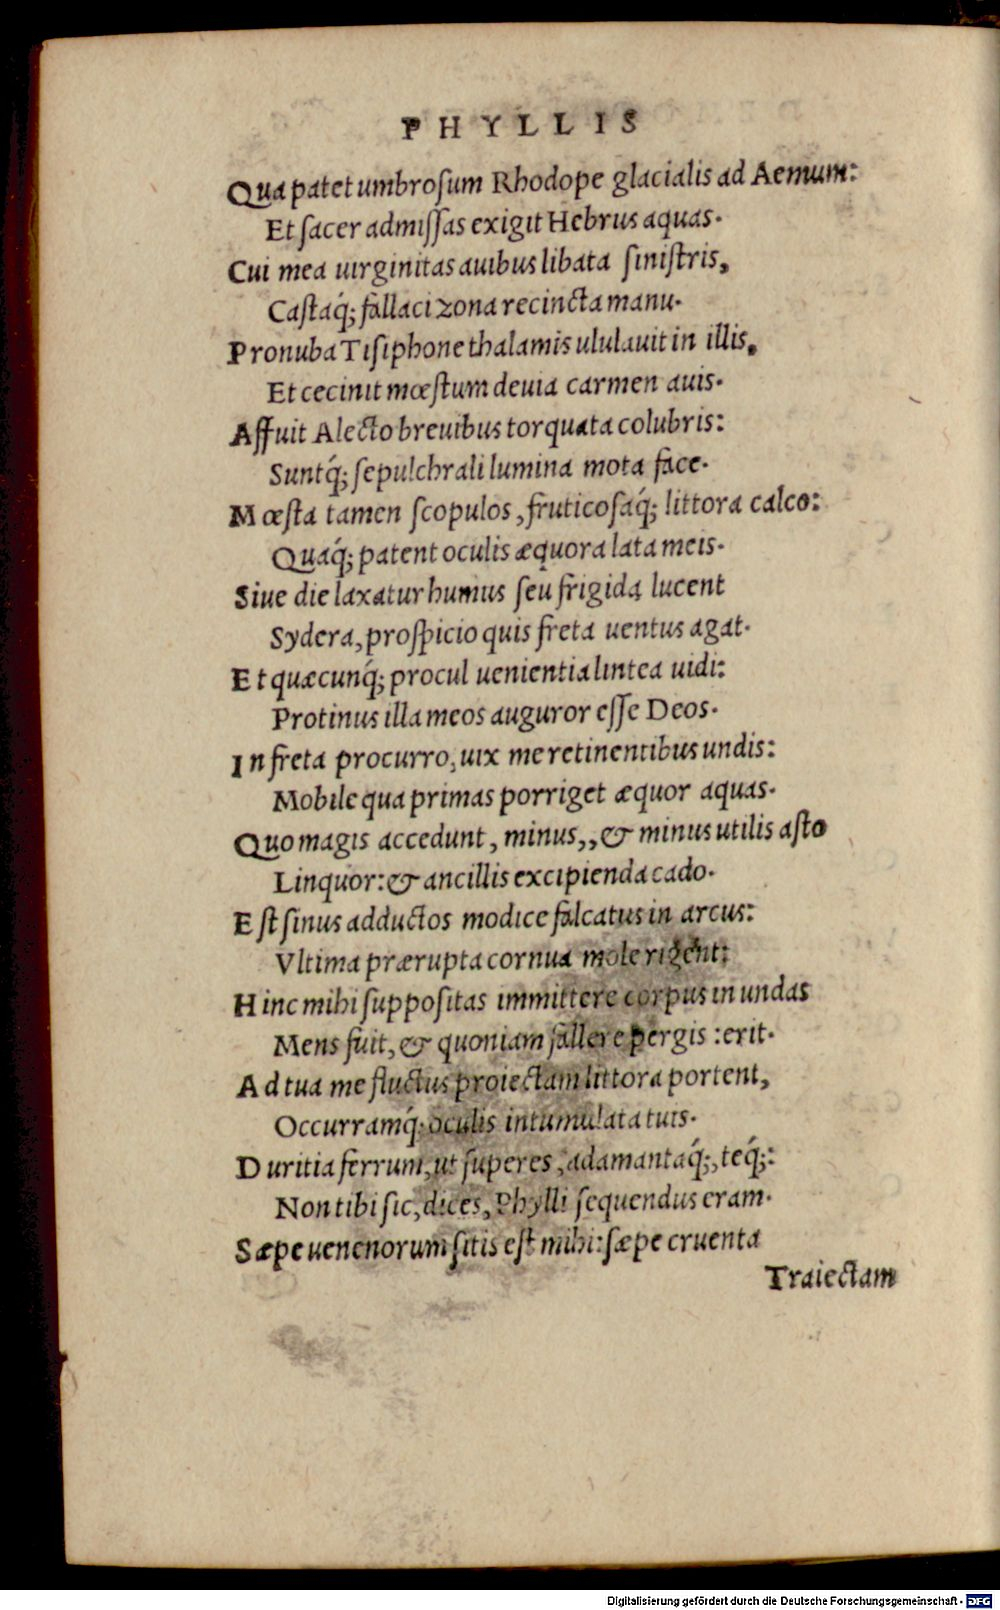 PHYLLIS
Qua patet umbroſum Rhodope glacialis ad Aemum:
Et ſacer admiſſas exigit Hebrus aquas.
Cui mea uirginitas auibus libata ſiniſtris,
Caſtaq́; fallaci zona recincta manu.
Pronuba Tiſiphone thalamis ululauit in illis,
Et cecinit mœſtum deuia carmen auis.
Affuit Alecto breuibus torquata colubris:
Suntq́; ſepulchrali lumina mota face.
Mœſta tamen ſcopulos, fruticoſaq́; littora calco:
Quaq́; patent oculis æquora lata meis.
Siue die laxatur humus ſeu frigida lucent
Sydera, proſpicio quis freta uentus agat.
Et quæcunq́; procul uenientia lintea uidi:
Protinus illa meos auguror eſſe Deos.
In freta procurro, uix me retinentibus undis:
Mobile qua primas porriget æquor aquas.
Quo magis accedunt, minus,, & minus utilis aſto
Linquor: & ancillis excipienda cado.
Eſt ſinus adductos modice falcatus in arcus:
Vltima prærupta cornua mole rigent:
Hinc mihi ſuppoſitas immittere corpus in undas
Mens fuit, & quoniam fallere pergis :erit.
Ad tua me fluctus proiectam littora portent,
Occurramq́; oculis intumulata tuis.
Duritia ferrum, ut ſuperes, adamantaq́;, teq́;:
Non tibi ſic, dices, Phylli ſequendus eram.
Sæpe uenenorum ſitis eſt mihi: ſæpe cruenta
Traiectam
Digitalisierung gefördert durch die Deutsche Forschungsgemeinschaft - DFG